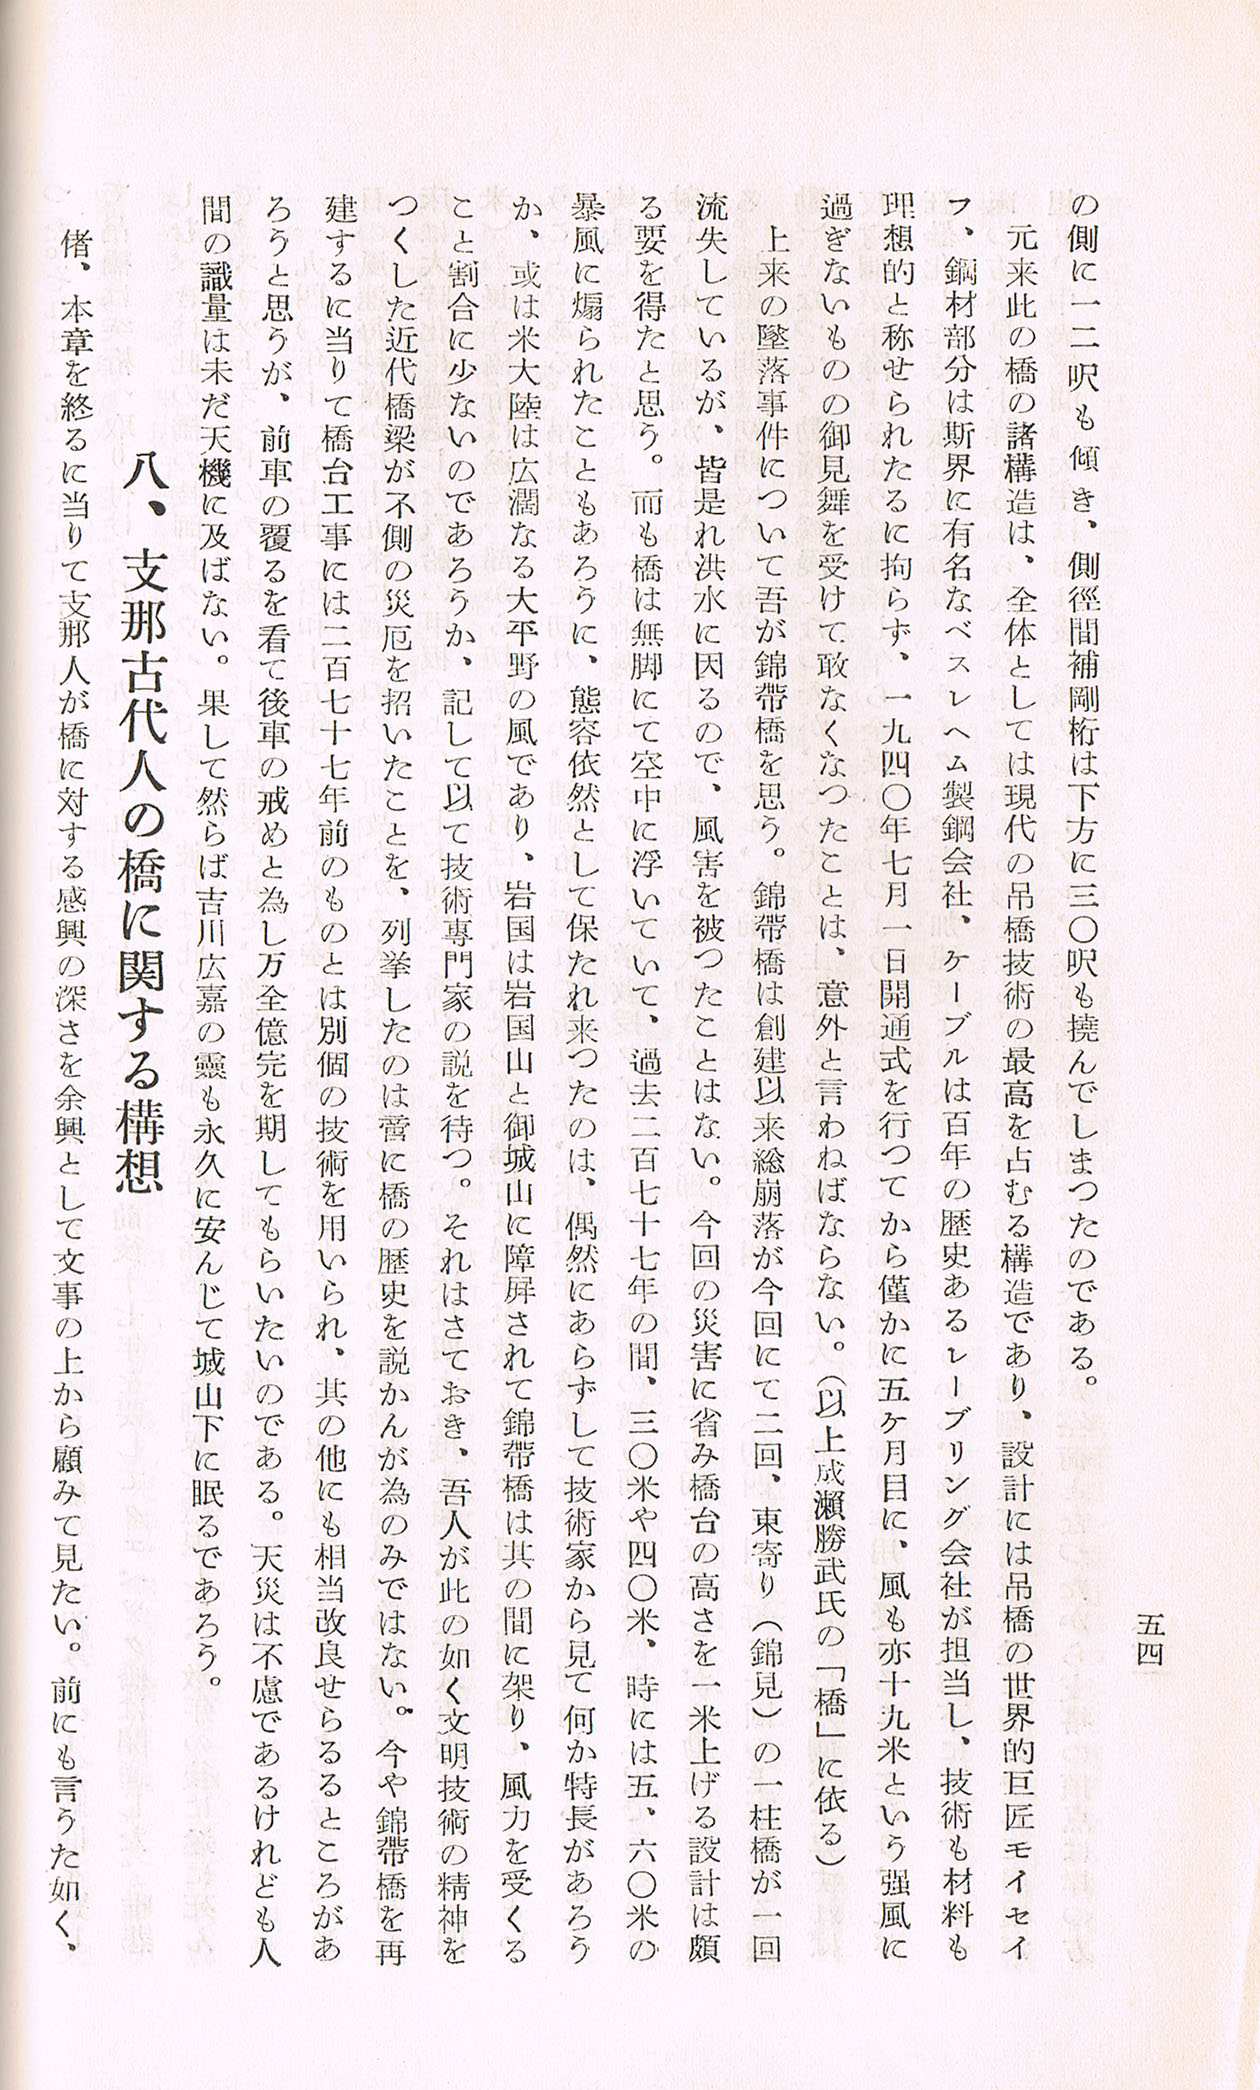 五四
の側に一二呎も傾き、側徑間補剛桁は下方に三〇呎も撓んでしまつたのである。
元来此の橋の諸構造は、全体としては現代の吊橋技術の最高を占むる構造であり、設計には吊橋の世界的巨匠モイセイ
フ、鋼材部分は斯界に有名なベスレヘム製鋼会社、ケーブルは百年の歴史あるレーブリング会社が担当し、技術も材料も
理想的と称せられたるに拘らず、一九四〇年七月一日開通式を行つてから僅かに五ケ月目に、風も亦十九米という强風に
過ぎないものの御見舞を受けて敢なくなつたことは、意外と言わねばならない。（以上成瀬勝武氏の「橋」に依る）
上来の墜落事件について吾が錦帶橋を思う。錦帶橋は創建以来総崩落が今回にて二回、東寄り（錦見）の一柱橋が一回
流失しているが、皆是れ洪水に因るので、風害を被つたことはない。今回の災害に省み橋台の高さを一米上げる設計は頗
る要を得たと思う。而も橋は無脚にて空中に浮いていて、過去二百七十七年の間、三〇米や四〇米、時には五、六〇米の
暴風に煽られたこともあろうに、態容依然として保たれ来つたのは、偶然にあらずして技術家から見て何か特長があろう
か、或は米大陸は広濶なる大平野の風であり、岩国は岩国山と御城山に障屛されて錦帶橋は其の間に架り、風力を受くる
こと割合に少ないのであろうか、記して以て技術専門家の説を待つ。それはさておき、吾人が此の如く文明技術の精神を
つくした近代橋梁が不側の災厄を招いたことを、列挙したのは啻に橋の歴史を説かんが為のみではない。今や錦帶橋を再
建するに当りて橋台工事には二百七十七年前のものとは別個の技術を用いられ、其の他にも相当改良せらるるところがあ
ろうと思うが、前車の覆るを看て後車の戒めと為し万全億完を期してもらいたいのである。天災は不慮であるけれども人
間の識量は未だ天機に及ばない。果して然らば吉川広嘉の靈も永久に安んじて城山下に眠るであろう。
八、支那古代人の橋に関する構想
偖、本章を終るに当りて支那人が橋に対する感興の深さを余興として文事の上から顧みて見たい。前にも言うた如く、